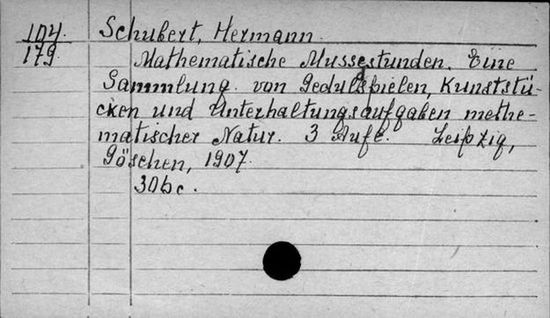 104. Schubert, Hermann.
179. Mathematische Mussestunden. Eine
Sammlung von Geduldspielen, Kunststü-
cken und Unterhaltungsaufgaben mathe-
matischer Natur. 3 Aufl. Leipzig,
Göschen, 1907.
306 c.